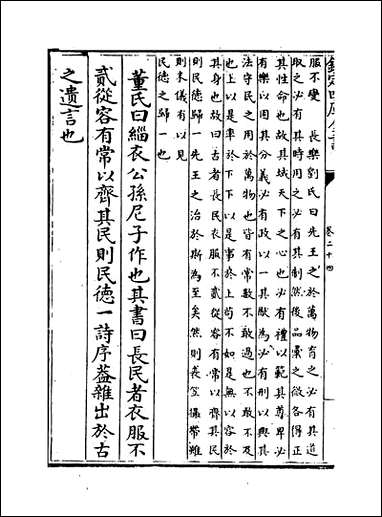 欽定四庫全書
卷二十四
服不變　長樂劉氏曰先王之於萬物育之必有其道
取之必有其時用之必有其制然後品彙之微各得正
其性命也故其域天下之心也必有禮以範其尊卑必
有樂以用其分義必有政以一其猷為必有刑以興其
法守民之用於萬物也皆有常數不敢過也不敢不及
也上以是率於下下以是事於上苟不如是無以容於
其身也故曰古者長民衣服不貳從容有常以齊其民
則民德歸一先王之治於斯為至矣然則蓑笠撮帶雖
則未儀有以見
民德之歸一也
董氏曰緇衣公孫尼子作也其書曰長民者衣服不
貳從容有常以齊其民則民德一詩序葢雜出於古
之遺言也